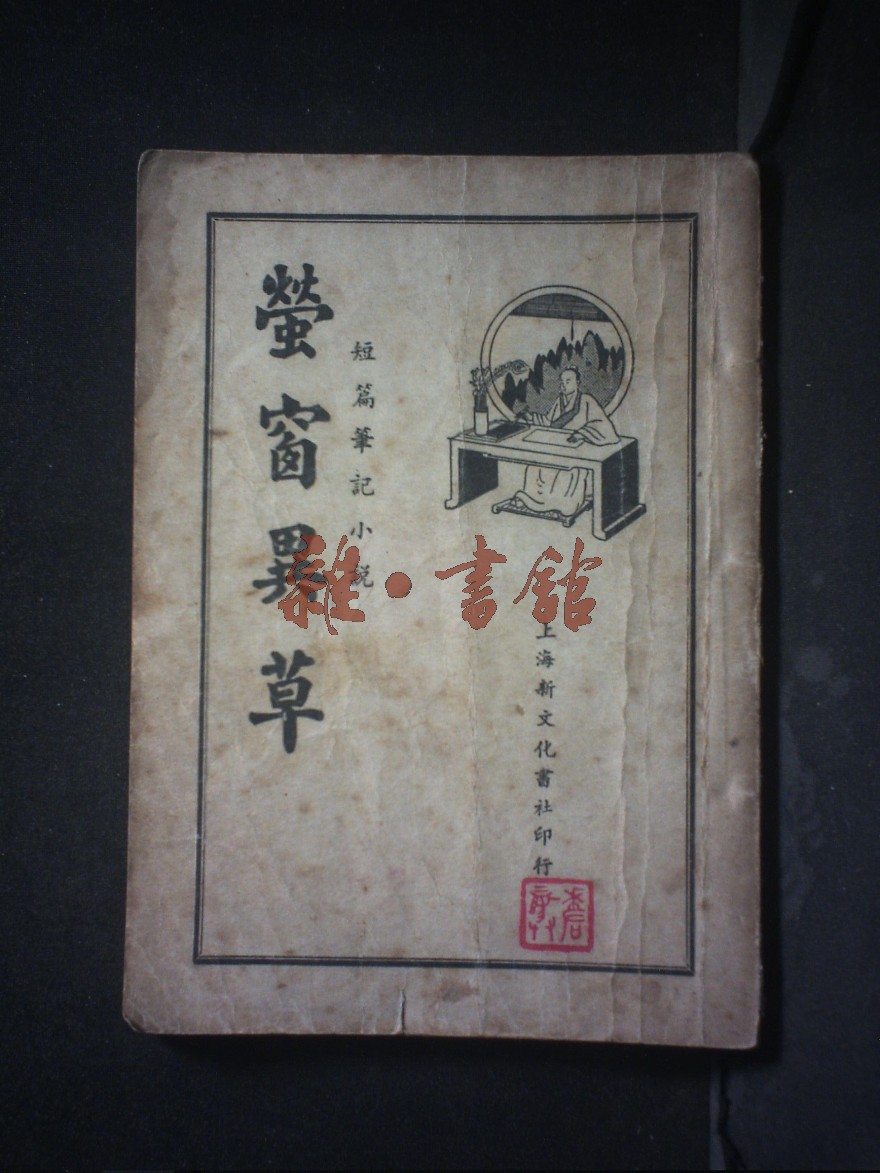 螢窗異草
短篇筆記小說
上海新文化書社印行
雜·書館